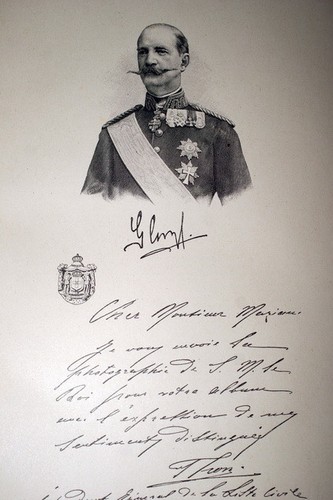 Cher Monsieur Mariani
Je vous envois la
photographie de S. M. le
Roi pour votre album
avec l'expression de mes
sentiments distingués
Thon.
Général de la Liste Civile